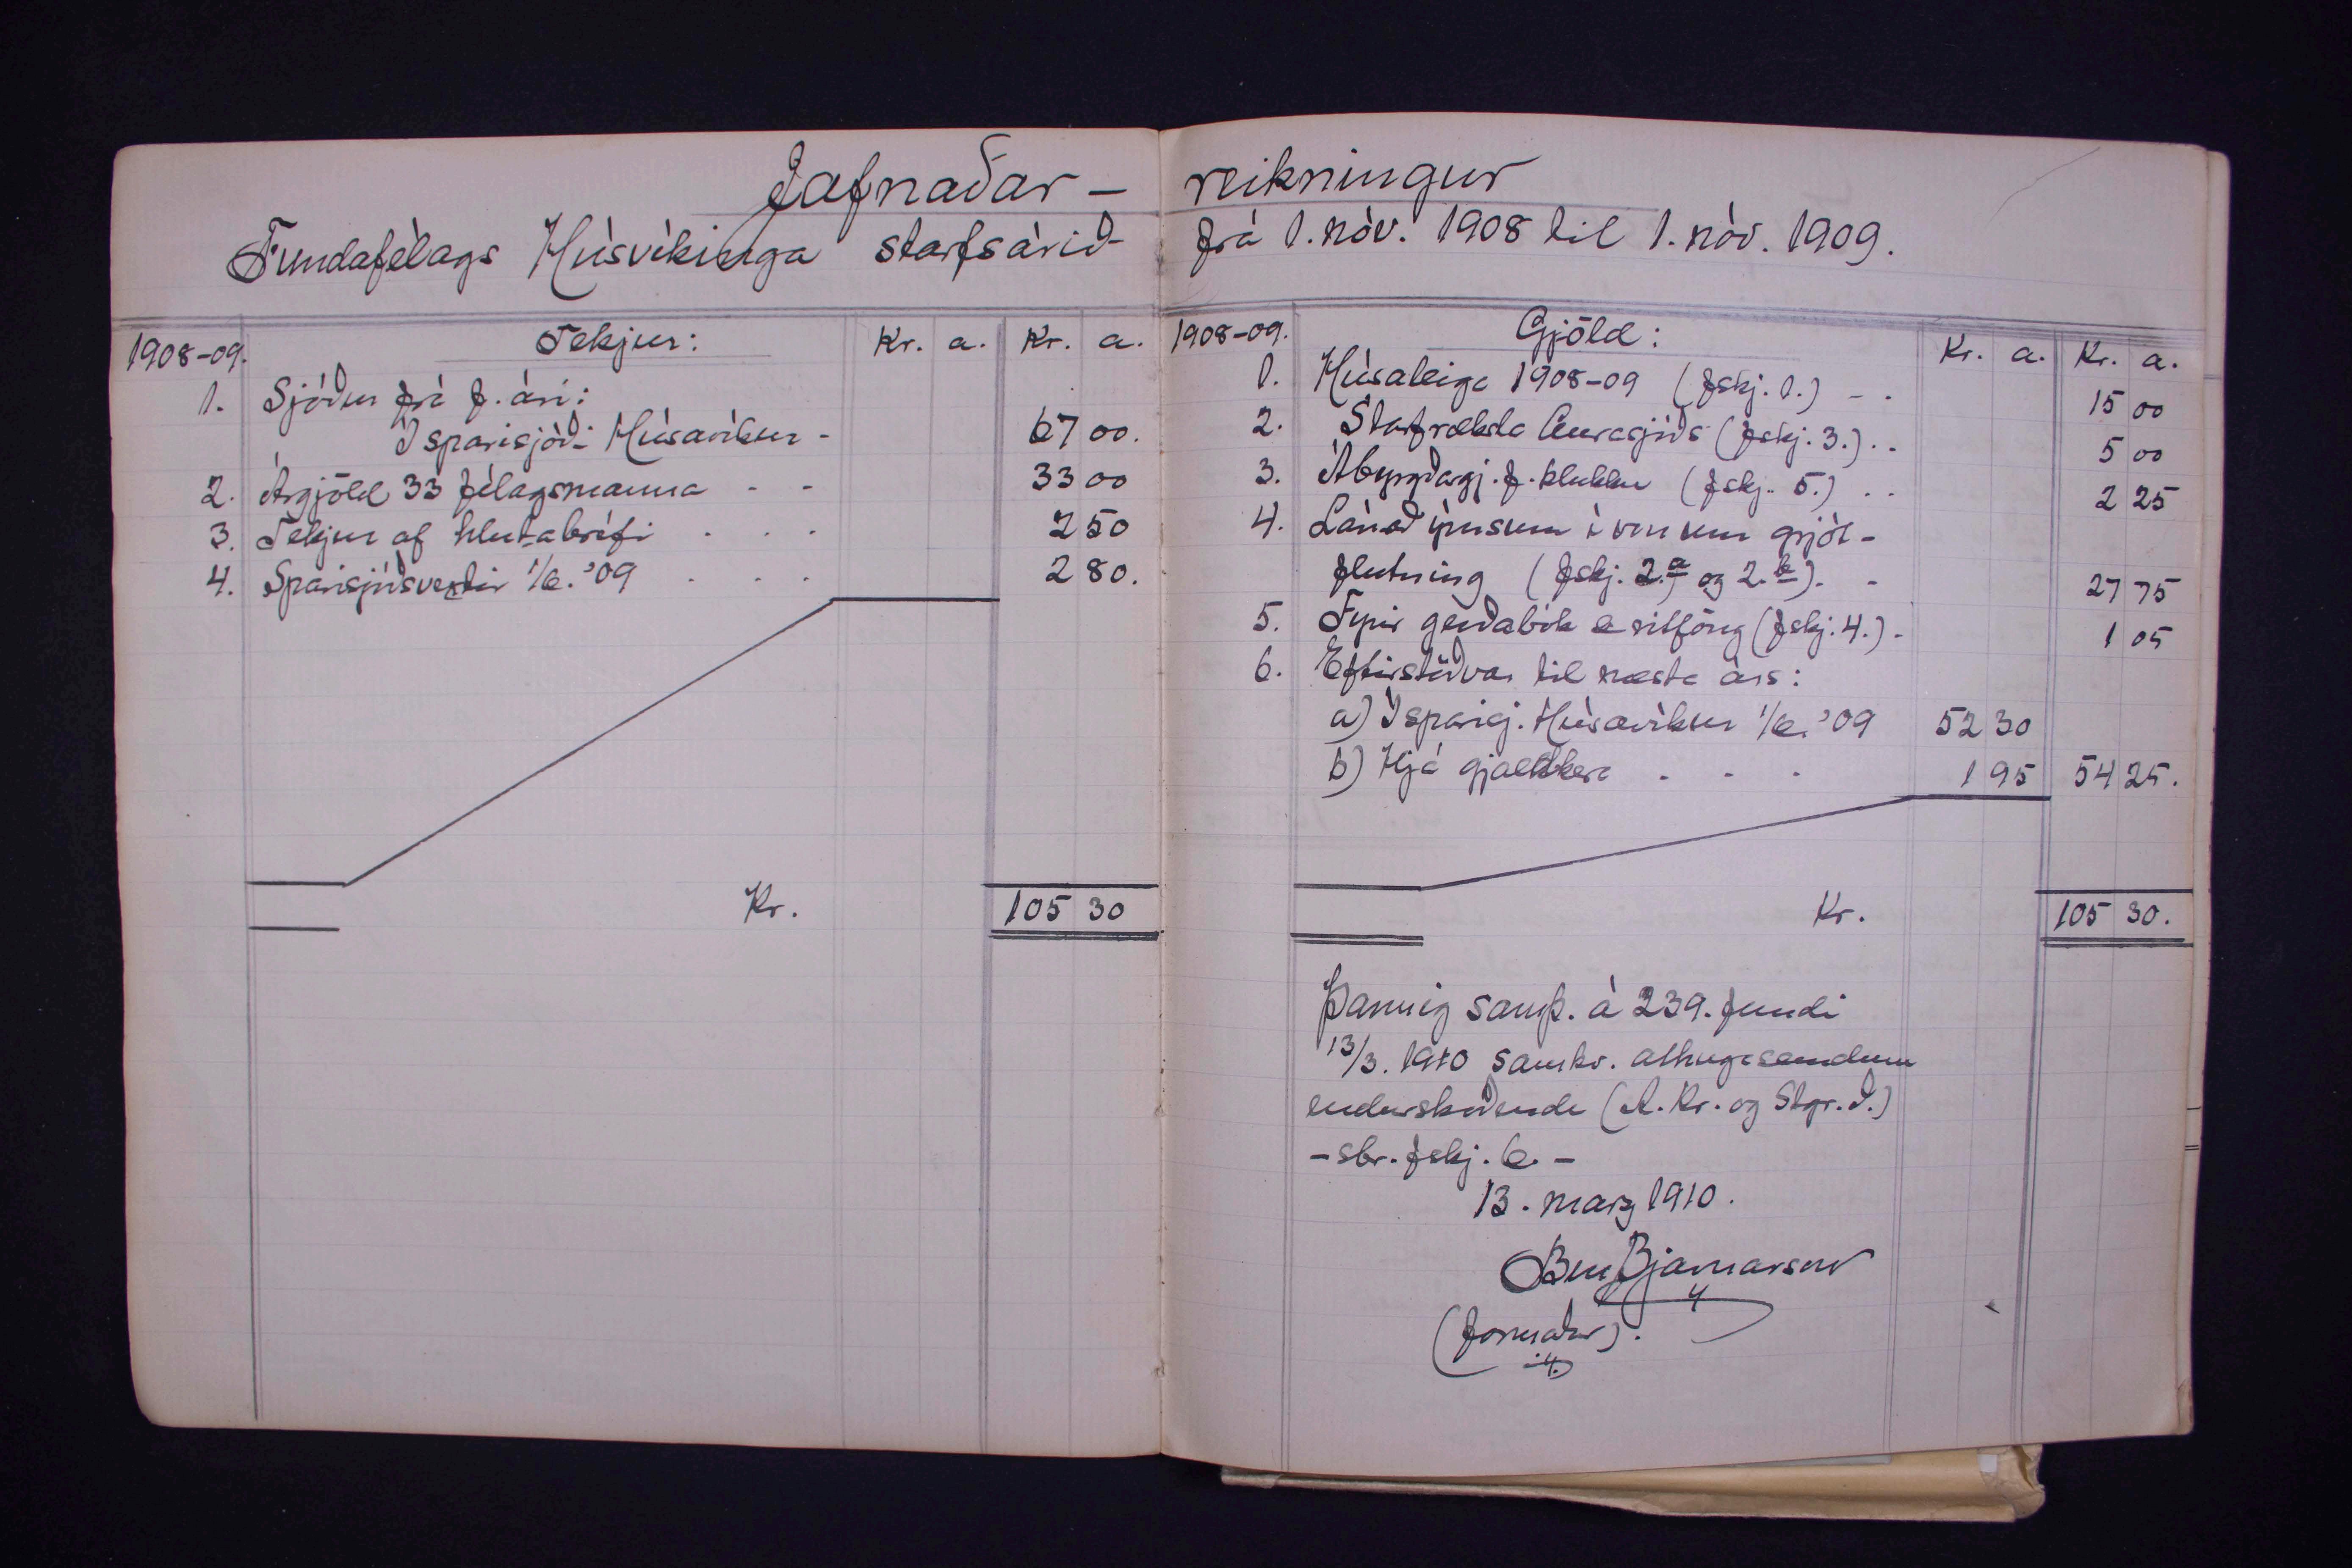 Jafnaðar – reikningur
Fundafélags Húsvíkinga starfsárið frá 1. nóv. 1908 til 1. nóv. 1909.
1908-09. Tekjur: Kr. a. Kr. a.
1. Sjóður frá f. ári:
Í sparisjóði Húsavíkur - 67 00.
2. Árgjöld 33 félagsmanna - - 33 00
3. Tekjur af hlutabréfi . . . 2 50
4. Sparisjóðsvextir 1/6. '09 . . . 2 80.
Kr. 105 30
1908-09. Gjöld: Kr. a. Kr. a.
1. Húsaleiga 1908-09 (fskj. 1.) - . 15 00
2. Starfræksla Aurasjóðs (fskj. 3.) . . 5 00
3. Ábyrgðargj. f. klukku (fskj. 5.) . . 2 25
4. Lánað ýmsum í vinnu grjót-
flutning (fskj. 2.a og 2.b). - 27 75
5. Fyrir gerðabók & ritföng (fskj. 4.) - 1 05
6. Eftirstöðvar til næsta árs:
a) Í sparisj. Húsavíkur 1/6. '09 52 30
b) Hjá gjaldkera . - . 1 95 54 25.
Kr. 105 30.
Þannig samþ. á 239. fundi
13/3. 1910 samkv. athugasemdum
endurskoðenda (A. Kr. og Stgr. J.)
- sbr. fskj. 6. -
13. marz 1910.
Ben Bjarnarson
(formaður).